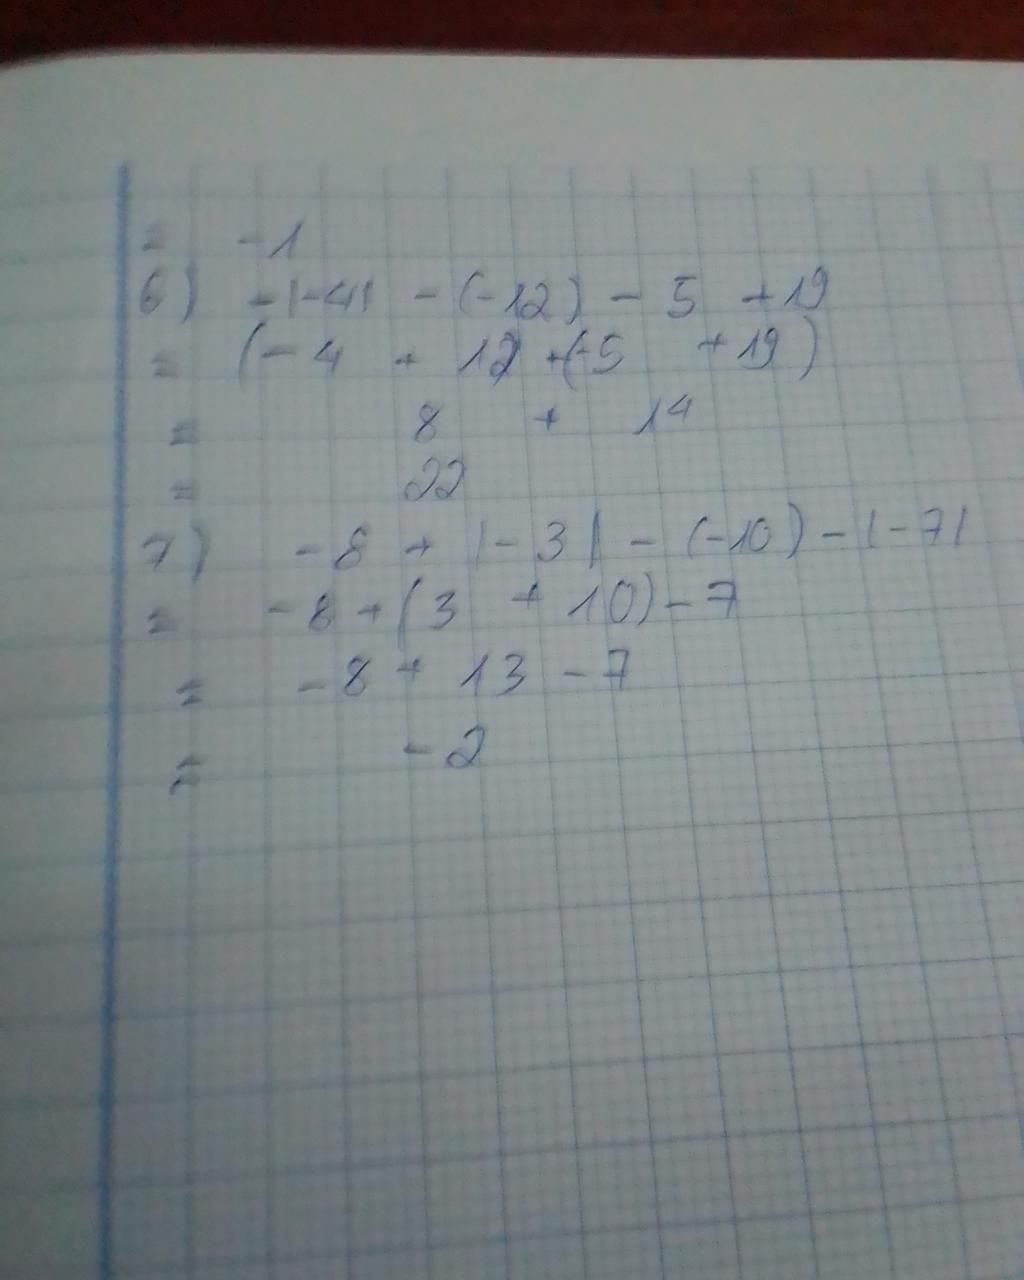 = -1
6) -|-4| - (-12) - 5 + 19
= (-4 + 12 + (-5 + 19)
= 8 + 14
= 22
7) -8 + |-3| - (-10) - |-7|
= -8 + (3 + 10) - 7
= -8 + 13 - 7
= -2